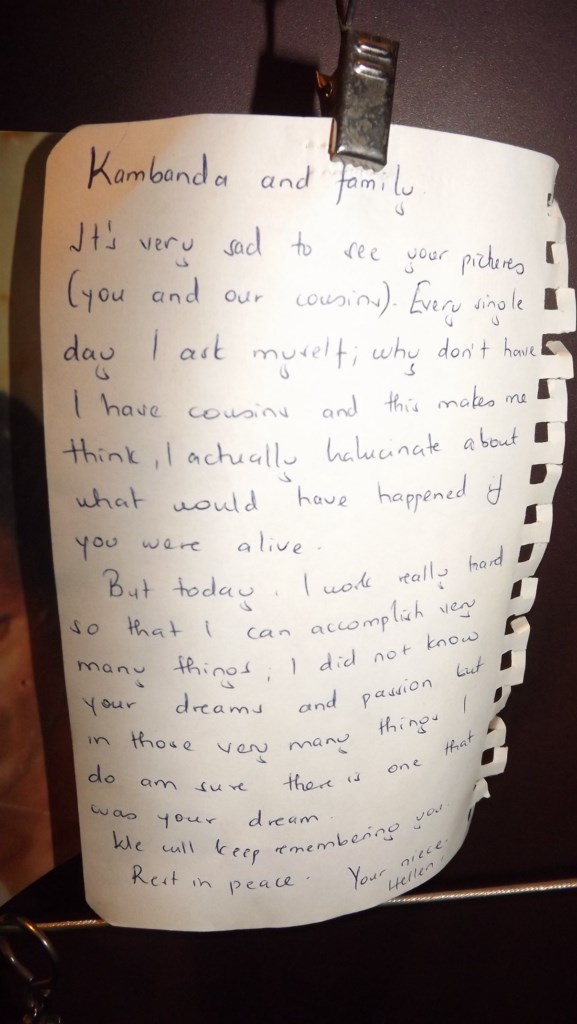 Kambanda and family.
It's very sad to see your pictures
(you and our cousins). Every single
day I ask myself; why don't have
I have cousins and this makes me
think, I actually halucinate about
what would have happened if
you were alive.
But today, I work really hard
so that I can accomplish very
many things; I did not know
your dreams and passion but
in those very many things I
do am sure there is one that
was your dream.
We will keep remembering you.
Rest in peace. Your niece.
Hellen.